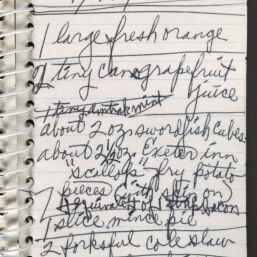 1 large fresh orange
2 tiny cans grapefruit
juice
about 2 ozn swordfish cubes
about 2½ ozn Exeter inn
scallops fry potato
pieces (with skin on)
1 slice mince pie
2 forksful cole slaw